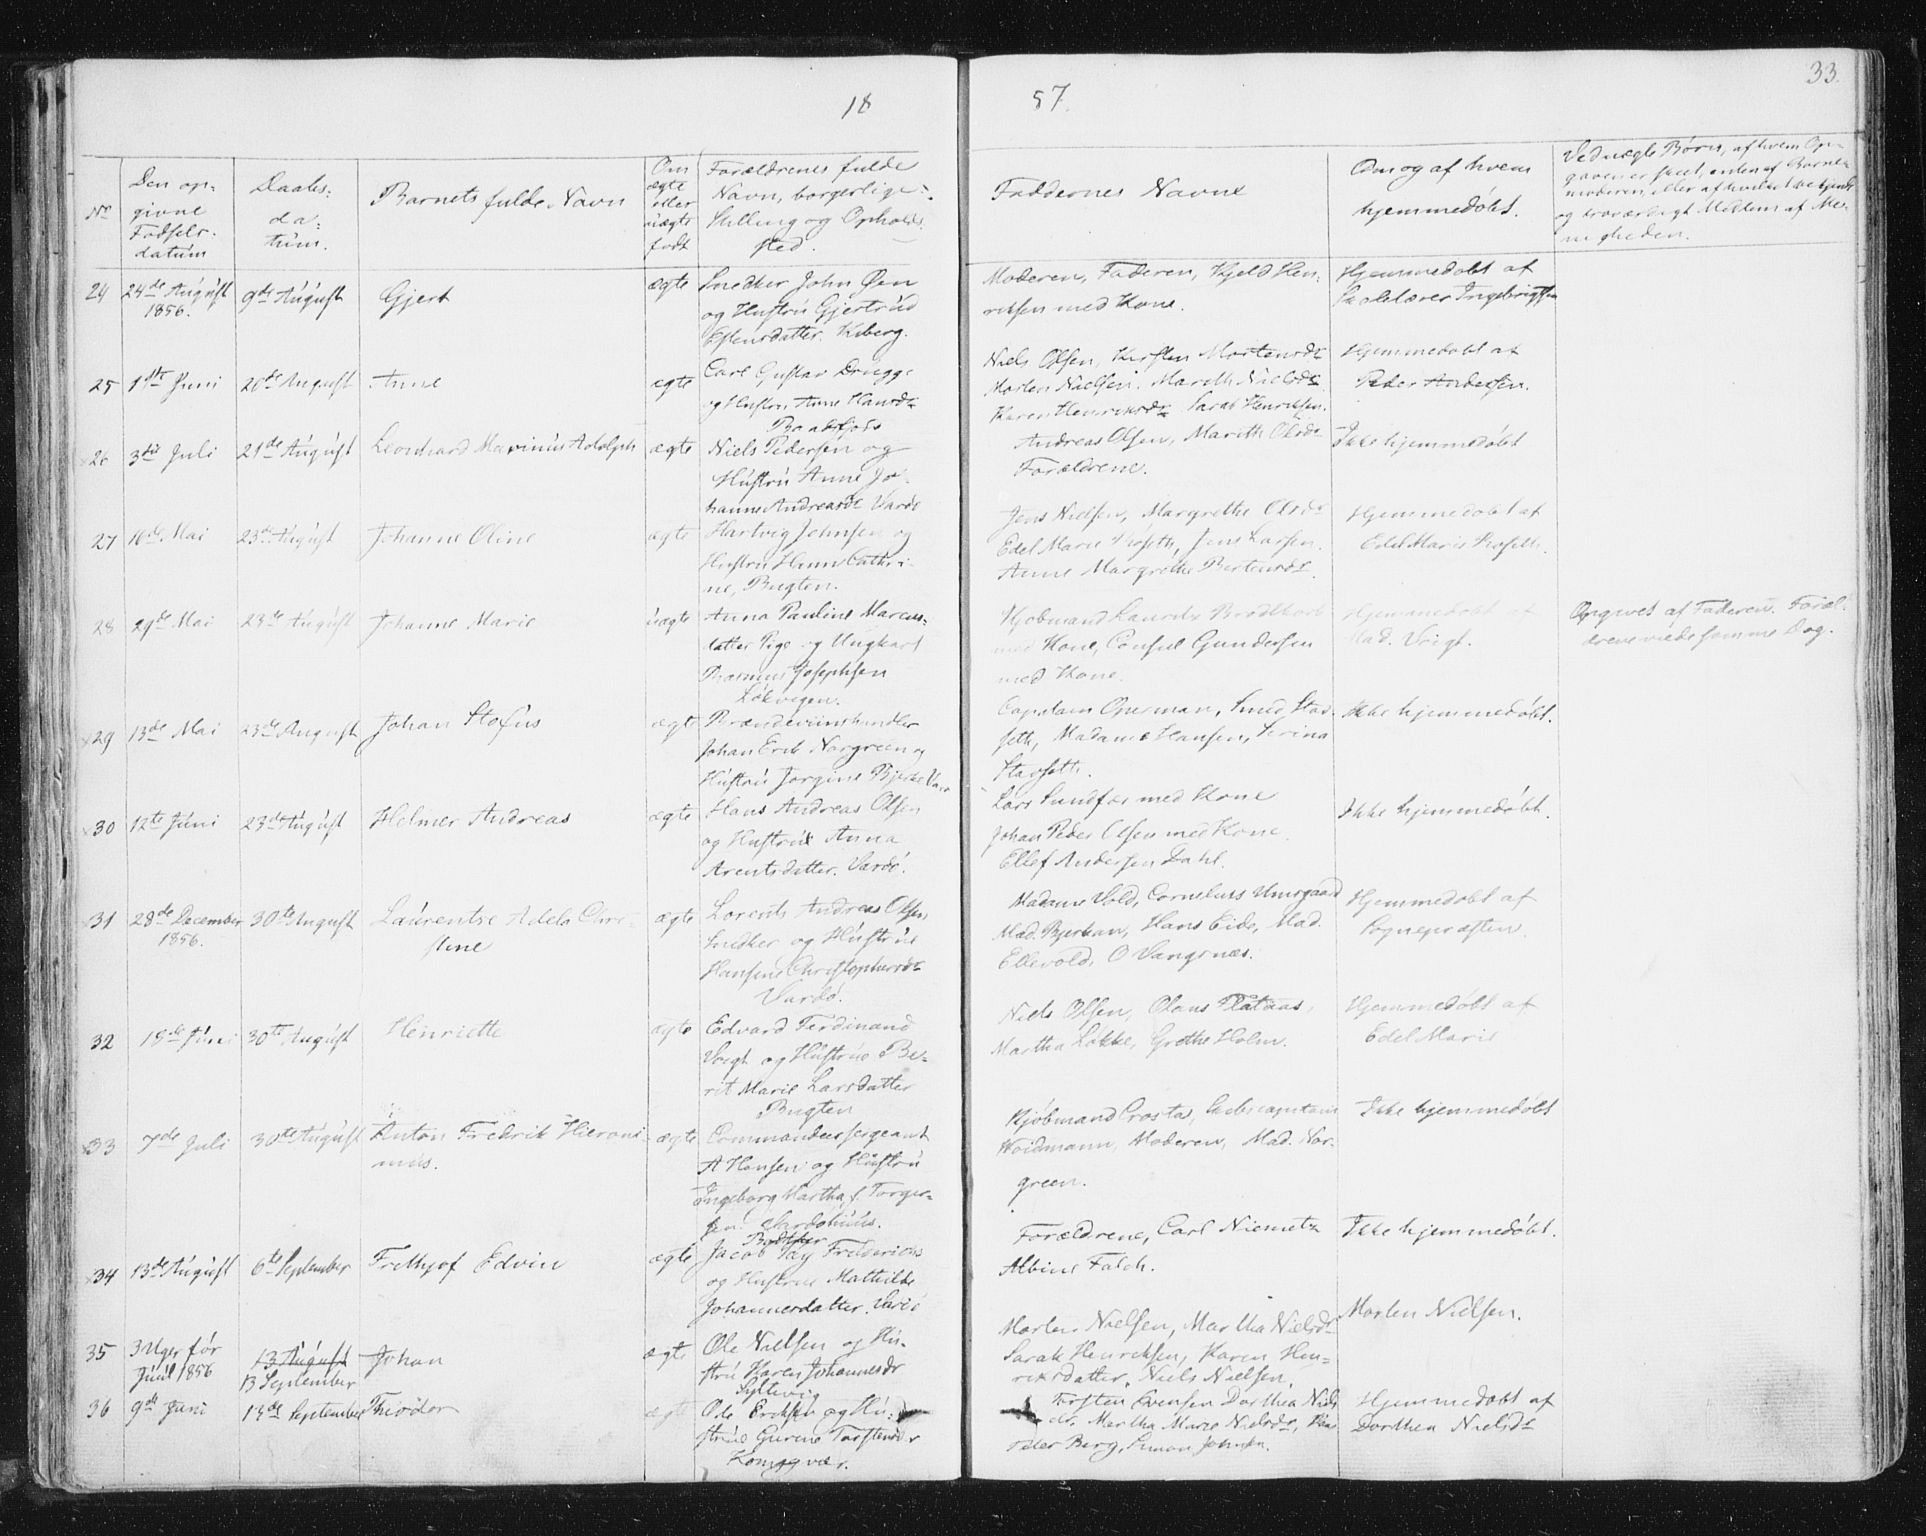 18
57.
33.
No
Den op-
givne
Fødsels-
datum
Daabs-
da-
tum.
Barnets fulde Navn
Om
ægte
eller
uægte
født
Forældrenes fulde
Navn, borgerlige
Stilling og Opholds
sted.
Faddernes Navne
Om og af hvem
hjemmedøbt.
Ved uægte Børn, af hvem Op-
gaven er skeet, enten af Barne-
moderen, eller af hvilket bekjendt
og troværdigt Medlem af Me-
nigheden.
24 24de August 9de August Gjert ægte Snedker John Øen
1856.
og Hustru Gjertrud
Estensdatter. Kiberg.
Moderen, Faderen, Kjeld Hen-
riksen med Kone.
Hjemmedøbt af
Skolelærer Ingebrigtsen
25 1ste Juni 20de August Anne ægte Carl Gustav
og Hustru Anne Hansdr
Baadsfjord
Niels Olsen, Kirsten Mortensdr
Morten Nielsen. Mareth Nielsdr
Karen Henriksdr Sarah Henriksen.
Hjemmedøbt af
Peder Andersen.
26 3die Juli 21de August Leonhard Marinius Adolph ægte Niels Pedersen og
Hustru Anne Jo-
hanne Andreasdr Vardø
Andreas Olsen, Marith Olsdr
Forældrene.
Ikke hjemmedøbt
27 16de Mai 23de August Johanne Oline ægte Hartvig Johnsen og
Hustru Hanna Cathri-
ne, Bugten.
Jens Nielsen, Margrethe Olsdr
Edel Marie Kofoeth, Jens Larsen.
Anne Margrethe Berntsdr.
Hjemmedøbt af
Edel Marie
28 29de Mai 23de August Johanne Marie uægte Anna Pauline Marcus-
datter Pige og Ungkarl
Rasmus Josephsen
Løkvigen.
Kjøbmand Laurits Brodtkorb
med Kone, Consul Gundersen
med Kone.
Hjemmedøbt af
Mad. Voigt.
Opgivet af Faderen. Foræl-
drene viede samme Dag.
29 13de Mai 23de August Johan Stofus ægte Brændeviinshandler
Johan Erik Norgreen og
Hustru Jorgine Bjerke Vardø
Capitain Operman, Smed Stav-
seth, Madame Hansen, Serina
Stavseth.
Ikke hjemmedøbt.
30 12te Juni 23de August Helmer Andreas ægte Hans Andreas Olsen
og Hustrue Anna
Arentsdatter. Vardø.
Lars Sundfær med Kone
Johan Peder Olsen med Kone.
Ellef Andersen Dahl.
Ikke hjemmedøbt.
31 28de December 30te August Laurentse Adela Chri- ægte Lorents Andreas Olsen
1856.
stine
Snedker og Hustrue
Hansine Christophersdr
Vardø.
Madame Vold, Cornelius
Mad. Bjerkan, Hans Eide, Mad.
Ellevold, O Vangsnæs.
Hjemmedøbt af
Sognepræsten.
32 18de Juni 30te August Henriette ægte Edvard Ferdinand
Voigt og Hustrue Be-
rit Marie Larsdatter
Bugten
Niels Olsen, Olaus Flataas,
Martha Løkke, Grethe Holm.
Hjemmedøbt af
Edel Marie
33 7de Juli 30te August Anton Fredrik Hieroni- ægte Commandeersergeant
mus.
A Hansen og Hustru
Ingeborg Martha f. Torger-
sen. Vardøhuus.
Kjøbmand Crosta, Skibscapitain
Woidmann, Moderen, Mad. Nor-
green.
Ikke hjemmedøbt
34 13de August 6te September Frethjof Edvin ægte Jacob Fay Fredericks
Bødtker
og Hustrue Mathilde
Johannesdatter. Vardø
Forældrene, Carl Niemetz
Albine Falch.
Ikke hjemmedøbt.
35 3 Uger før 13 August Johan ægte Ole Nielsen og Hu-
Juul 1856 13 September
stru Karen Johannesdr
Syltevig
Morten Nielsen, Martha Nielsdr
Sarah Henriksen, Karen Hen-
riksdatter. Niels Nielsen.
Morten Nielsen.
36 9de Juni 13de September Theodor ægte Ole Eriksen og Hu-
strue Gurene Torstensdr
Kongsvær.
Torsten Evensen Dorthea Niels
dr. Martha Marie Nielsdr,
Peder Berg, Simon Johnsen.
Hjemmedøbt af
Dorthea Nielsdr